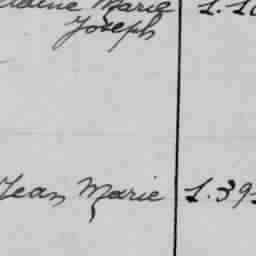 Marie 1.1
Joseph
Jean Marie 1.39